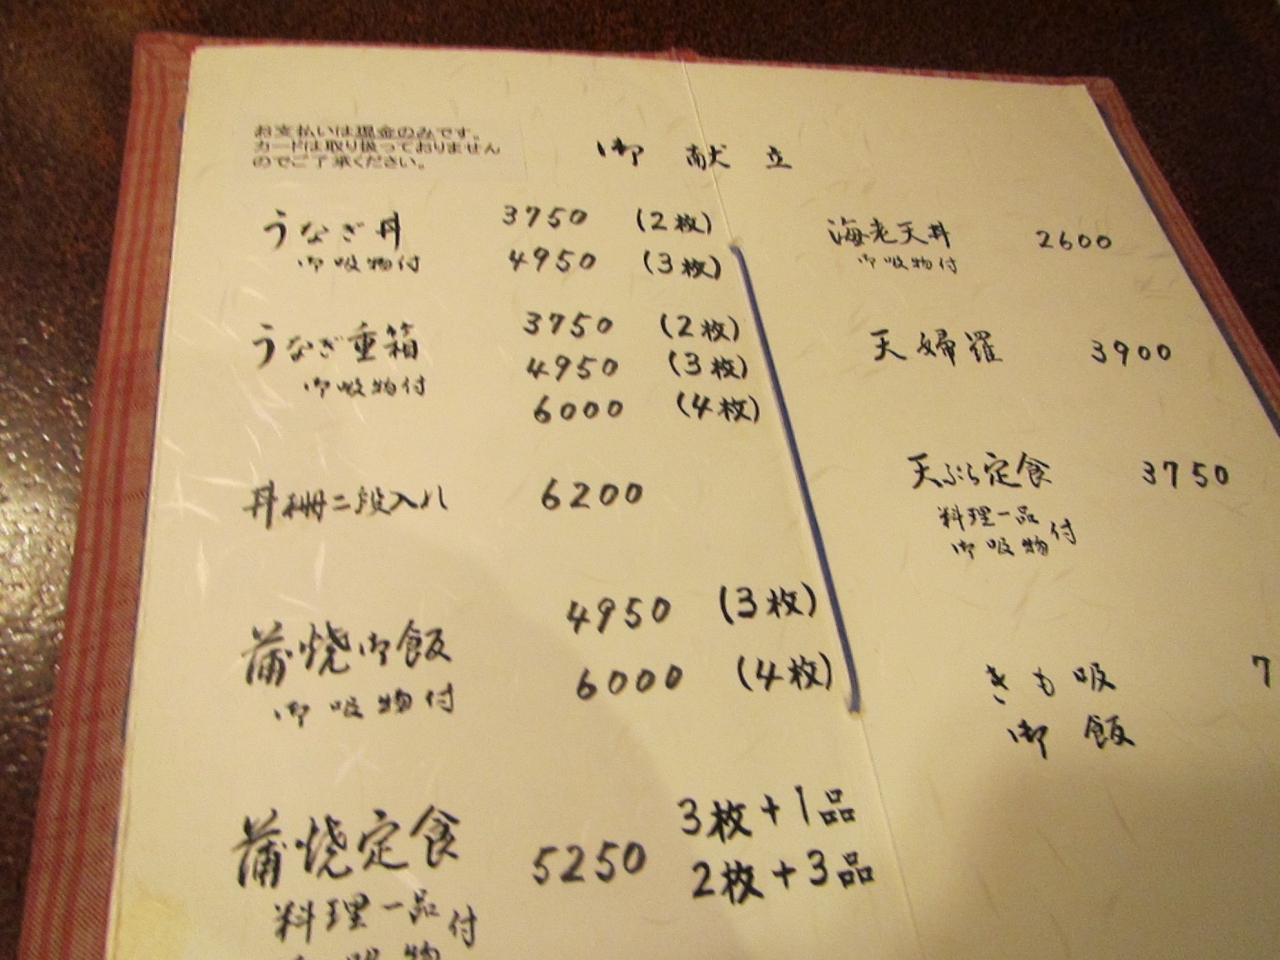 お支払いは現金のみです。
カードは取り扱っておりません
のでご了承ください。
御献立
うなぎ丼 3750 (2枚)
御吸物付 4950 (3枚)
うなぎ重箱 3750 (2枚)
4950 (3枚)
御吸物付
6000 (4枚)
丼柵二段入れ 6200
蒲焼御飯 4950 (3枚)
御吸物付 6000 (4枚)
蒲焼定食 5250 3枚+1品
2枚+3品
料理一品付
海老天丼 2600
御吸物付
天婦羅 3900
天ぷら定食 3750
料理一品
御吸物付
きも吸 7
御飯